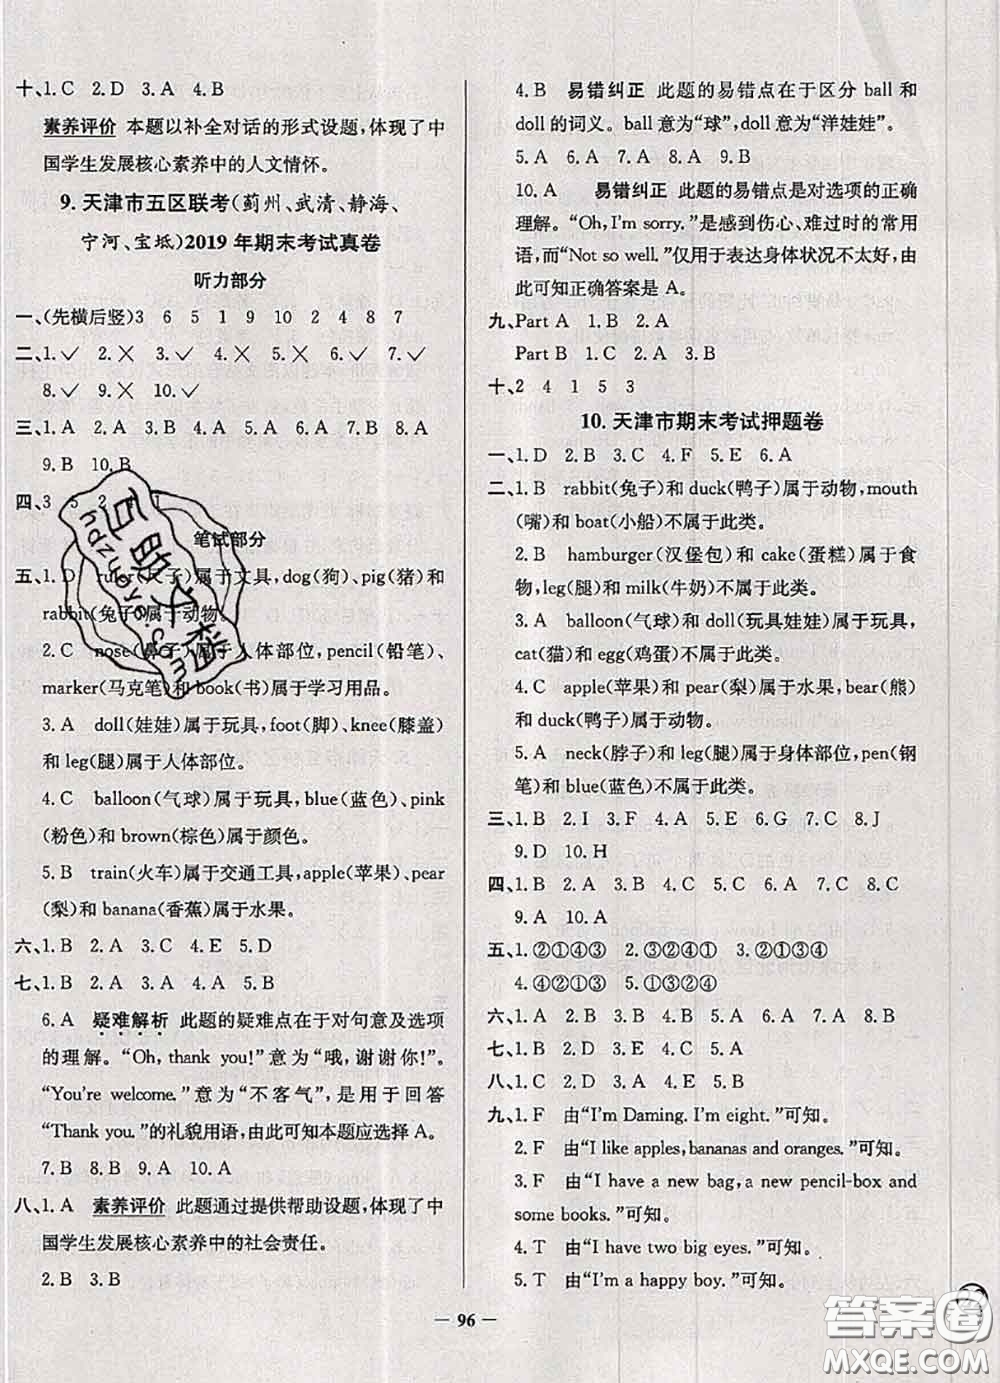 十、1.C 2.D 3.A 4.B
素养评价 本题以补全对话的形式设题,体现了中
国学生发展核心素养中的人文情怀。
9. 天津市五区联考(蓟州、武清、静海、
宁河、宝坻)2019 年期末考试真卷
听力部分
一、(先横后竖)3 6 5 1 9 10 2 4 8 7
二、1.✓ 2.✕ 3.✓ 4.✕ 5.✓ 6.✕ 7.✓
8.✓ 9.✕ 10.✓
三、1.A 2.A 3.A 4.B 5.A 6.B 7.B 8.A
9.B 10.B
四、3 5 2 4 1
笔试部分
五、1.D ruler(尺子)属于文具,dog(狗)、pig(猪)和
rabbit(兔子)属于动物。
2.C nose(鼻子)属于人体部位,pencil(铅笔)、
marker(马克笔)和 book(书)属于学习用品。
3.A doll(娃娃)属于玩具,foot(脚)、knee(膝盖)
和 leg(腿)属于人体部位。
4.C balloon(气球)属于玩具,blue(蓝色)、pink
(粉色)和 brown(棕色)属于颜色。
5.B train(火车)属于交通工具,apple(苹果)、pear
(梨)和 banana(香蕉)属于水果。
六、1.B 2.A 3.C 4.E 5.D
七、1.B 2.A 3.A 4.A 5.B
6.A 疑难解析 此题的疑难点在于对句意及选项
的理解。“Oh, thank you!”意为“哦,谢谢你!”。
“You're welcome.”意为“不客气”,是用于回答
“Thank you.”的礼貌用语,由此可知本题应选择 A。
7.B 8.B 9.A 10.A
八、1.A 素养评价 此题通过提供帮助设题,体现了中
国学生发展核心素养中的社会责任。
2.B 3.B
4.B 易错纠正 此题的易错点在于区分 ball 和
doll 的词义。ball 意为“球”,doll 意为“洋娃娃”。
5.A 6.A 7.A 8.A 9.B
10.A 易错纠正 此题的易错点是对选项的正确
理解。“Oh,I'm sorry.”是感到伤心、难过时的常用
语,而“Not so well.”仅用于表达身体状况不太好,由
此可知正确答案是 A。
九、Part A 1.B 2.A
Part B 1.C 2.A 3.B
十、2 4 1 5 3
10. 天津市期末考试押题卷
一、1.D 2.B 3.C 4.F 5.E 6.A
二、1.B rabbit(兔子)和 duck(鸭子)属于动物,mouth
(嘴)和 boat(小船)不属于此类。
2.B hamburger(汉堡包)和 cake(蛋糕)属于食
物,leg(腿)和 milk(牛奶)不属于此类。
3.A balloon(气球)和 doll(玩具娃娃)属于玩具,
cat(猫)和 egg(鸡蛋)不属于此类。
4.C apple(苹果)和 pear(梨)属于水果,bear(熊)
和 duck(鸭子)属于动物。
5.A neck(脖子)和 leg(腿)属于身体部位,pen(钢
笔)和 blue(蓝色)不属于此类。
三、1.B 2.I 3.F 4.A 5.E 6.G 7.C 8.J
9.D 10.H
四、1.B 2.A 3.B 4.B 5.A 6.B 7.A 8.C
9.A 10.A
五、1.②①④③ 2.③②④① 3.②①③④
4.④②①③ 5.④②①③
六、1.B 2.A 3.B 4.A 5.B 6.A 7.A 8.B
七、1.B 2.D 3.E 4.C 5.A
八、1.C 2.D 3.E 4.A 5.B
九、1.F 由“I'm Daming. I'm eight.”可知。
2.F 由“I like apples,bananas and oranges.”可知。
3.F 由“I have a new bag, a new pencil-box and
some books.”可知。
4.T 由“I have two big eyes.”可知。
5.T 由“I'm a happy boy.”可知。
— 96 —
答案圈
MXQE.COM